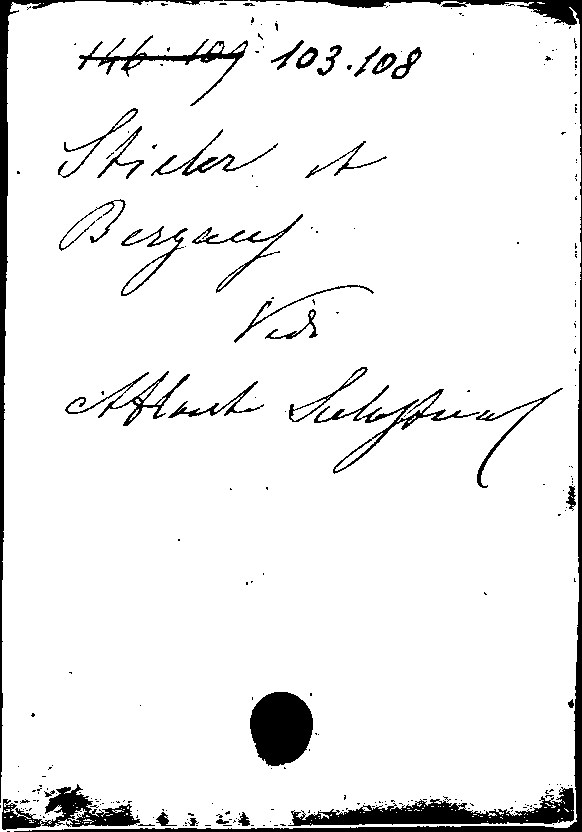 146.109 103.108
Stieler et
Berghaus
Vedi
Atlante